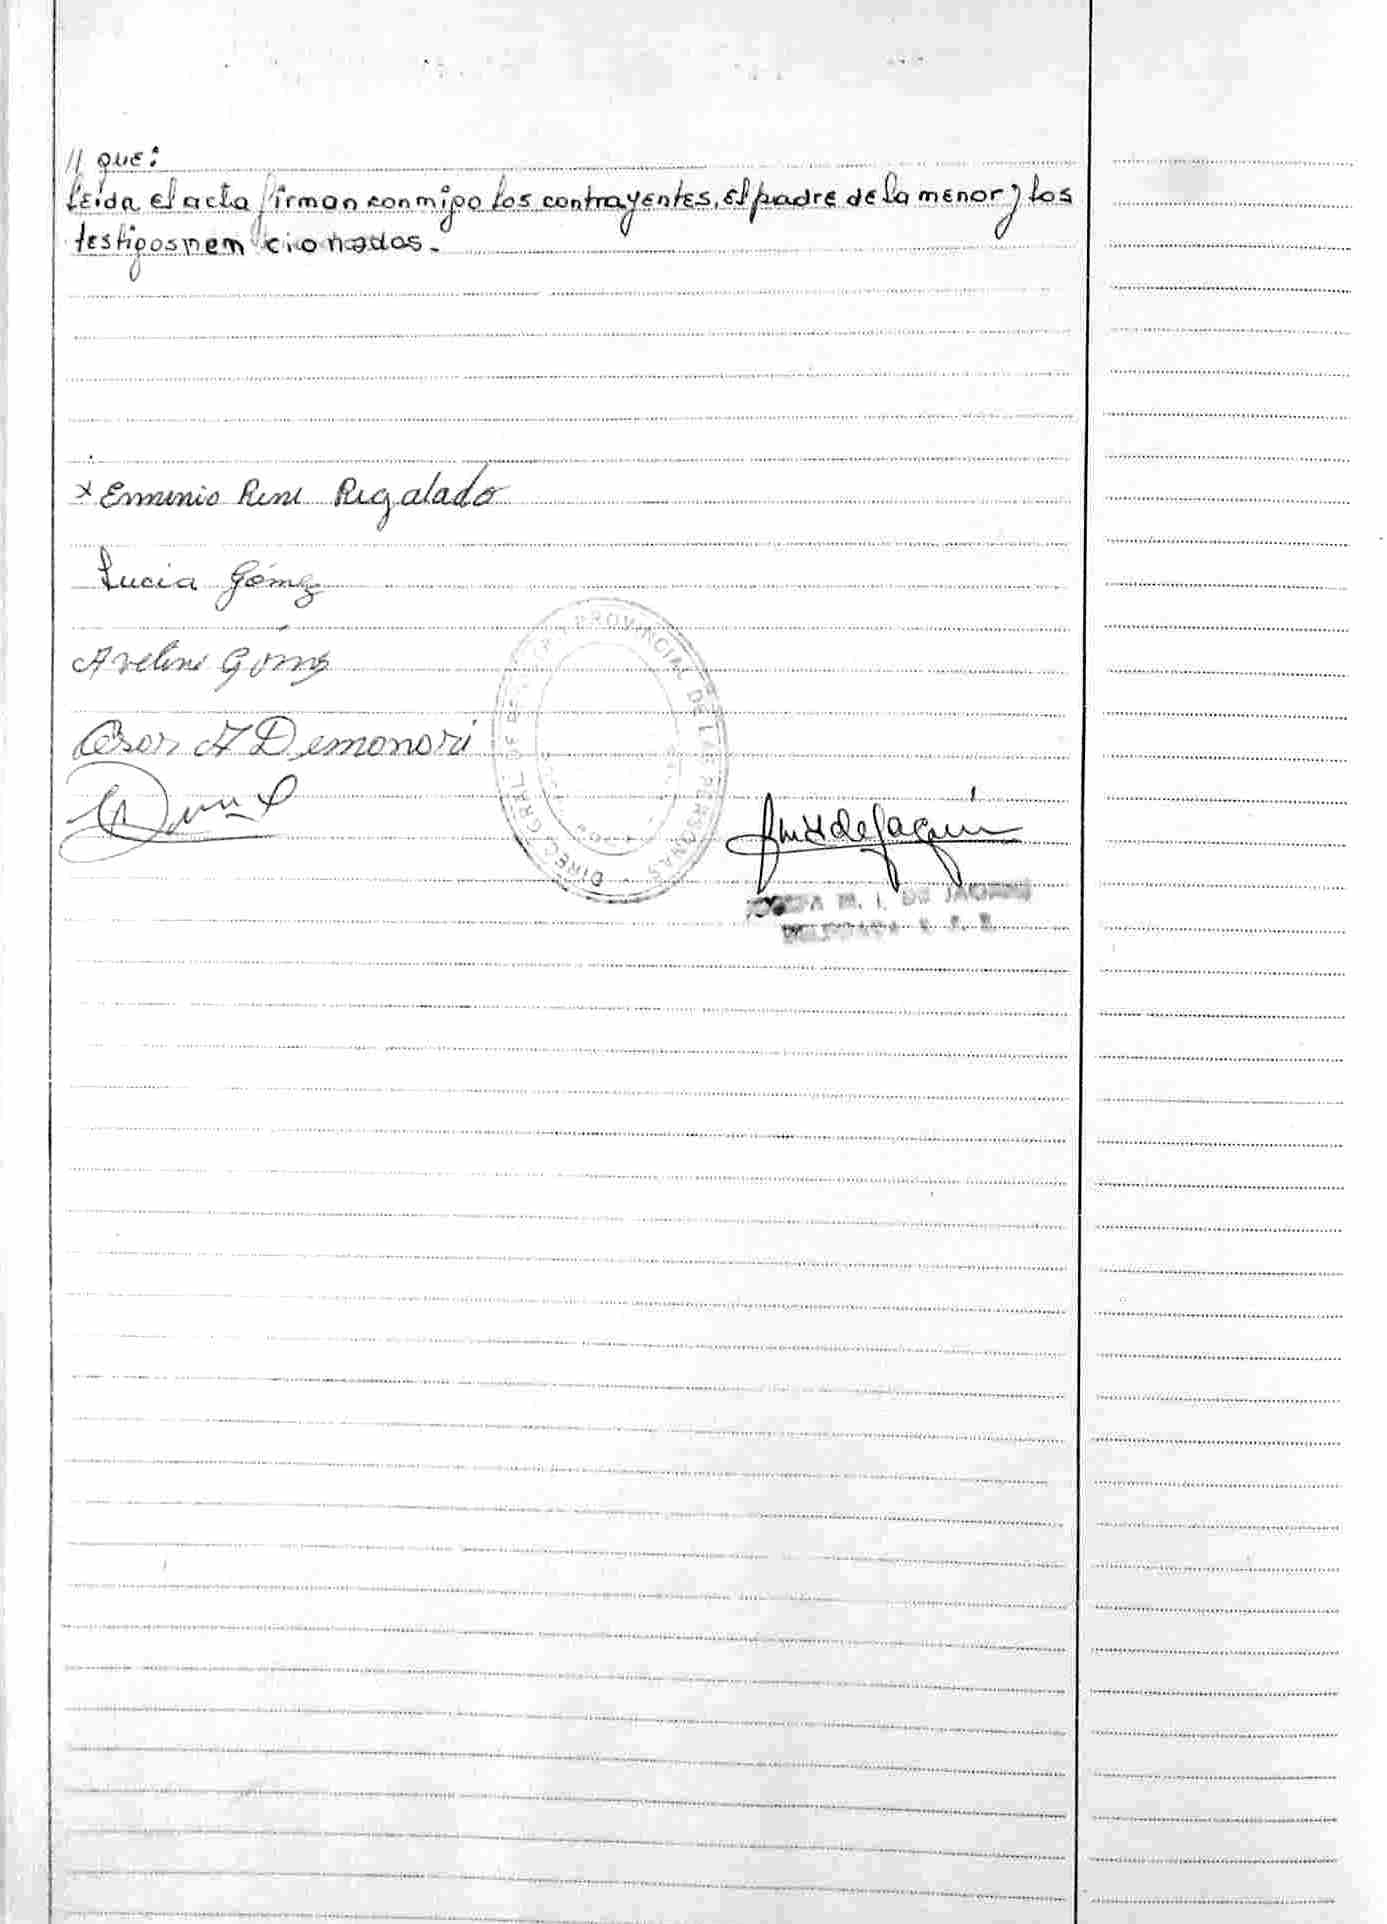 // que:
Leida el acta firman conmigo los contrayentes, el padre de la menor y los
testigos mem cionados.-
x Erminio Rene Regalado
Lucia Gómez
Avelino Gómez
Oscar A Demonari
DIREC. GRAL. DE REGISTRO PROVINCIAL DE LAS PERSONAS
JOSEFA M. I. DE JAQUIN